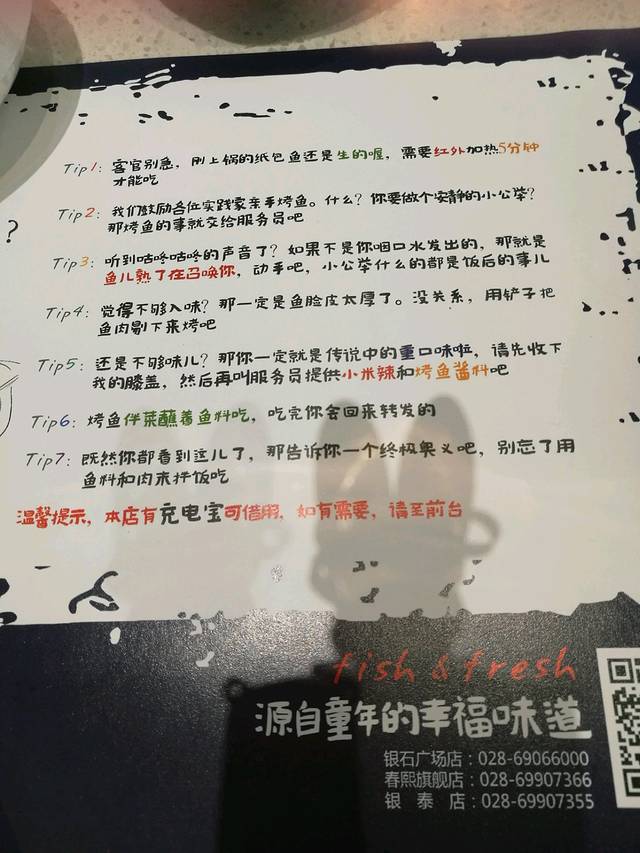 Tip1: 客官别急，刚上锅的纸包鱼还是生的喔，需要红外加热5分钟
才能吃
Tip2: 我们鼓励各位实践家亲手烤鱼。什么？你要做个安静的小公举？
那烤鱼的事就交给服务员吧
Tip3: 听到咕咚咕咚的声音了？如果不是你咽口水发出的，那就是
鱼儿熟了在召唤你，动手吧，小公举什么的都是饭后的事儿
Tip4: 觉得不够入味？那一定是鱼脸皮太厚了。没关系，用铲子把
鱼肉剔下来烤吧
Tip5: 还是不够味儿？那你一定就是传说中的重口味啦，请先收下
我的膝盖，然后再叫服务员提供小米辣和烤鱼酱料吧
Tip6: 烤鱼伴菜蘸着鱼料吃，吃完你会回来转发的
Tip7: 既然你都看到这儿了，那告诉你一个终极奥义吧，别忘了用
鱼料和肉末拌饭吃
温馨提示，本店有充电宝可借用，如有需要，请至前台
?
fish & fresh
源自童年的幸福味道
银石广场店：028-69066000
春熙旗舰店：028-69907366
银泰店：028-69907355